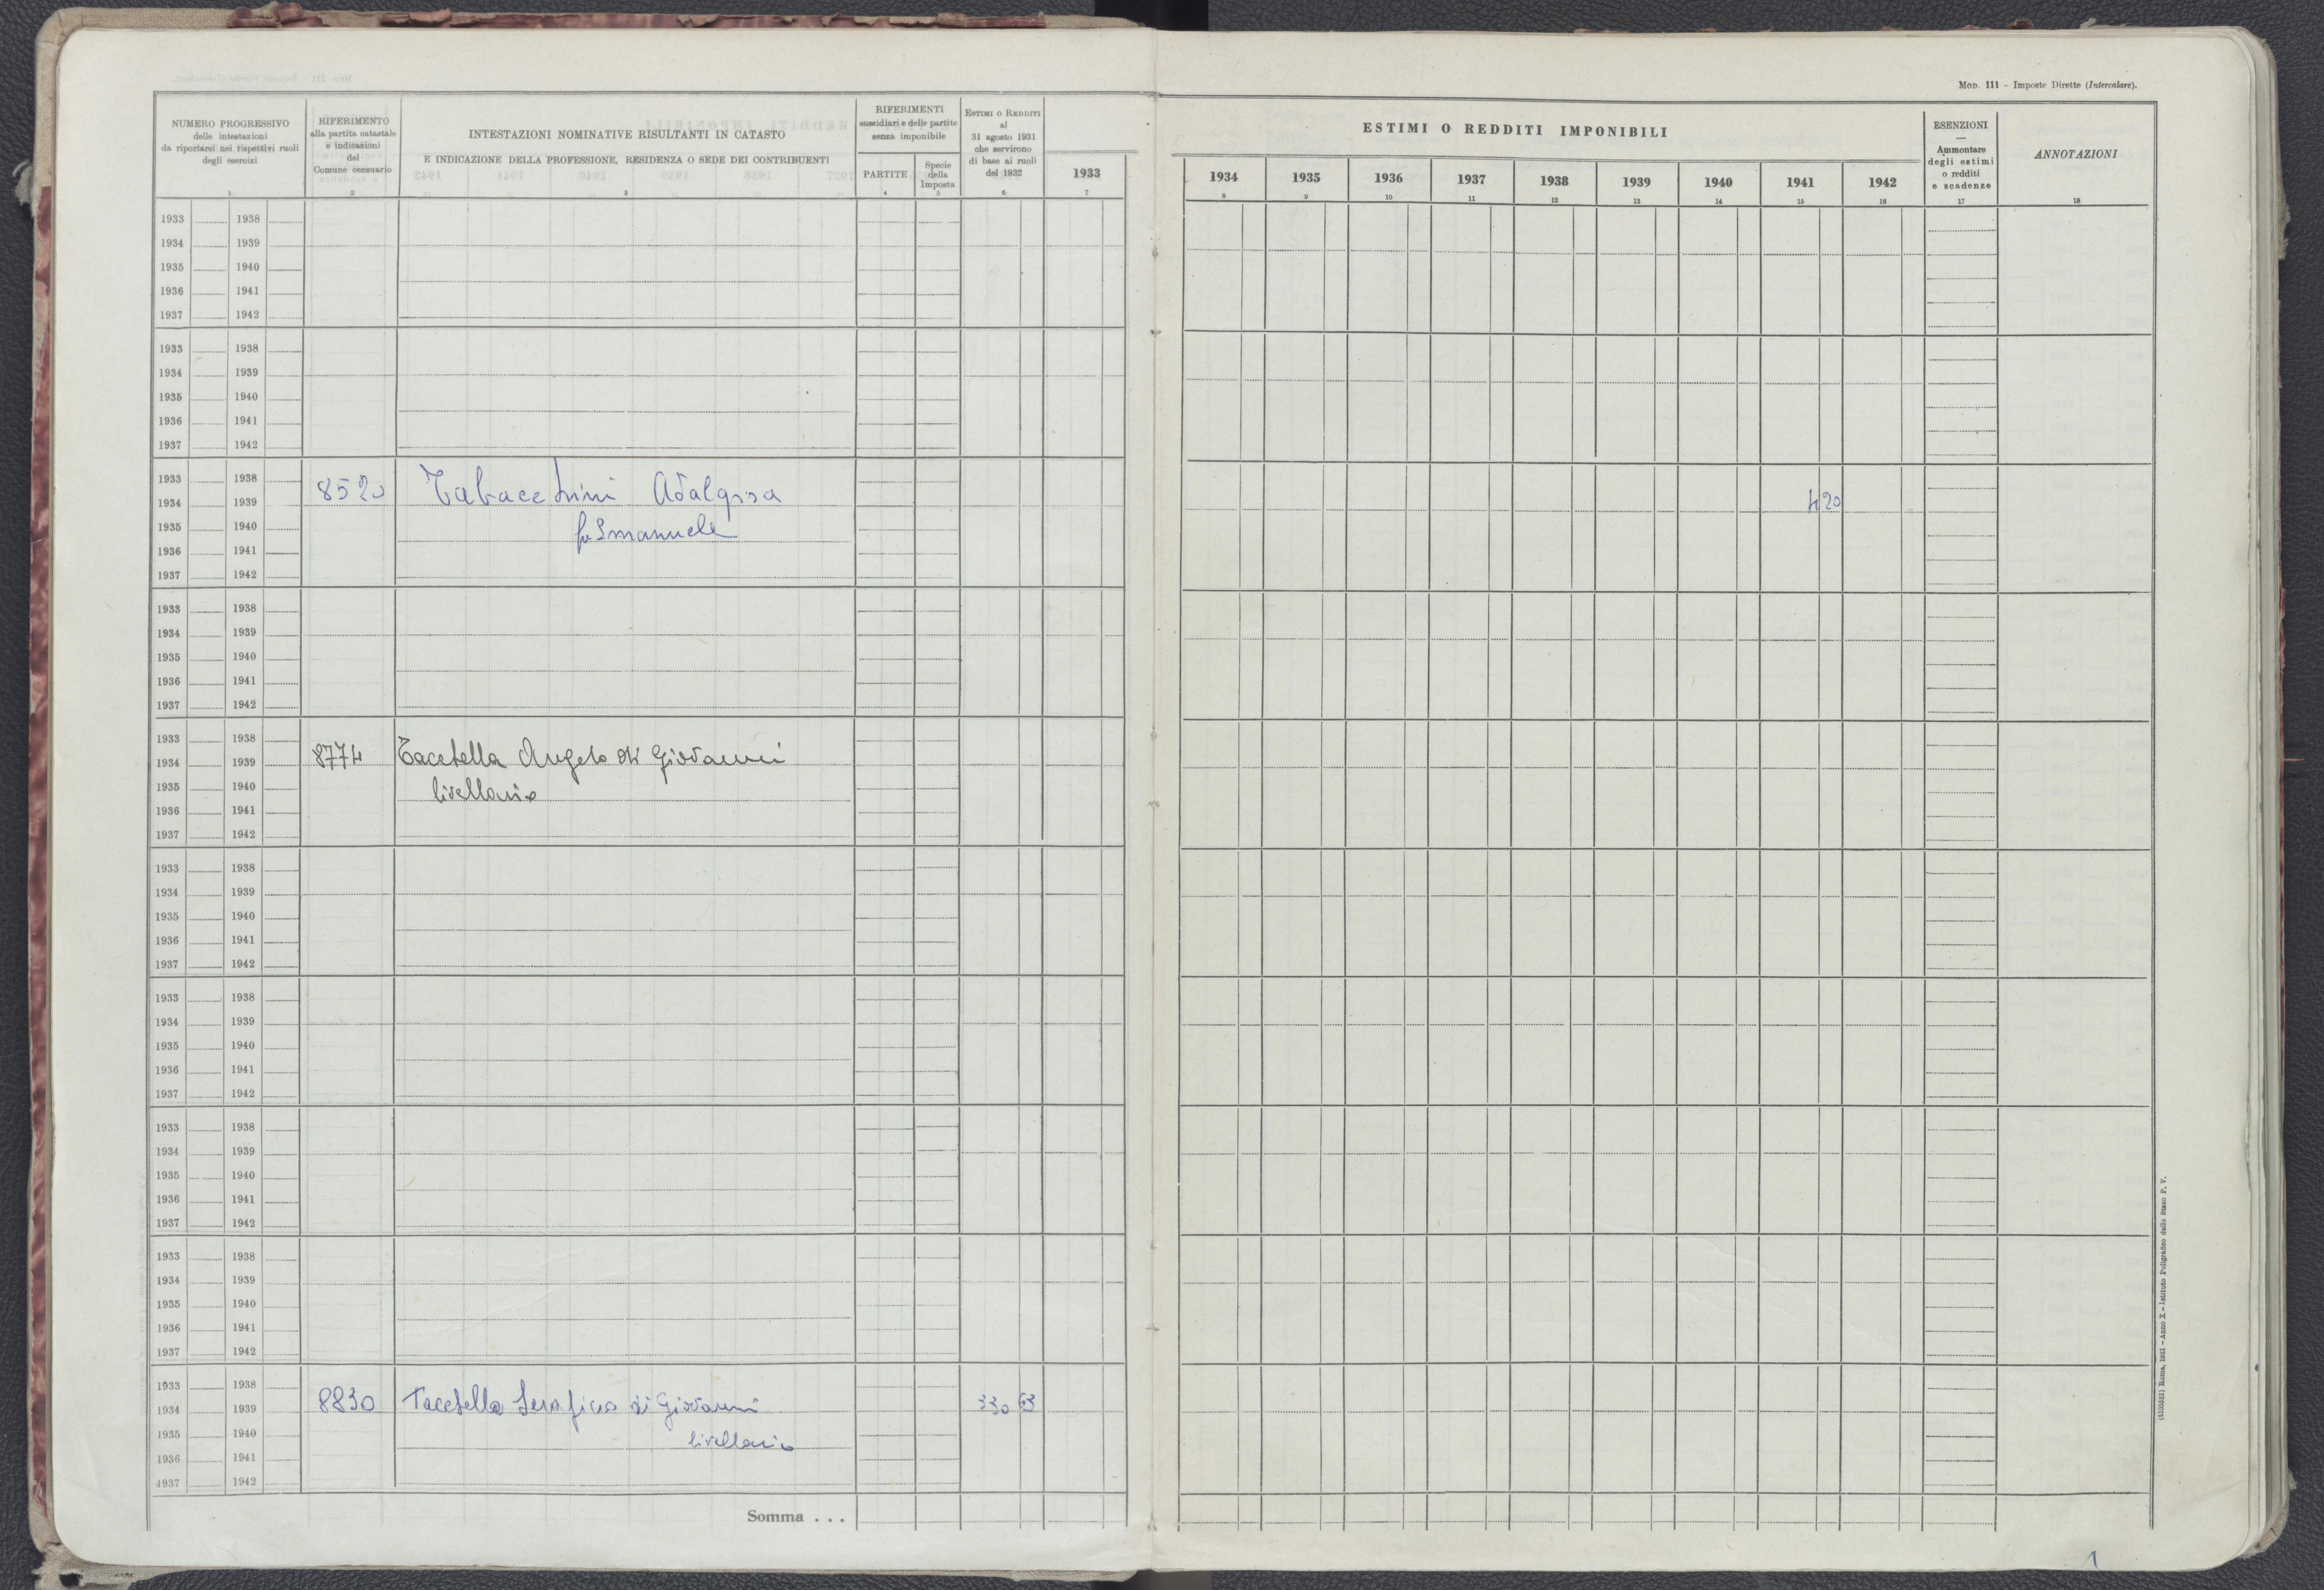 Mod. 111 – Imposte Dirette (Intercalare).
NUMERO PROGRESSIVO
delle intestazioni
da riportarsi nei rispettivi ruoli
degli esercizi
1
RIFERIMENTO
alla partita catastale
e indicazioni
del
Comune censuario
2
INTESTAZIONI NOMINATIVE RISULTANTI IN CATASTO
E INDICAZIONE DELLA PROFESSIONE, RESIDENZA O SEDE DEI CONTRIBUENTI
3
RIFERIMENTI
sussidiari e delle partite
senza imponibile
PARTITE
4
Specie
della
Imposta
5
Estimi o Redditi
al
31 agosto 1931
che servirono
di base ai ruoli
del 1932
6
1933
7
ESTIMI O REDDITI IMPONIBILI
1934 1935 1936 1937 1938 1939 1940 1941 1942
8 9 10 11 12 13 14 15 16
ESENZIONI
—
Ammontare
degli estimi
o redditi
e scadenze
17
ANNOTAZIONI
18
1933 1938
1934 1939
1935 1940
1936 1941
1937 1942
1933 1938
1934 1939
1935 1940
1936 1941
1937 1942
1933 1938
1934 1939 8520 Tabacchini Adalgisa 420
1935 1940 fu Emanuele
1936 1941
1937 1942
1933 1938
1934 1939
1935 1940
1936 1941
1937 1942
1933 1938
1934 1939 8774 Taccetella Angelo di Giovanni
1935 1940 livellario
1936 1941
1937 1942
1933 1938
1934 1939
1935 1940
1936 1941
1937 1942
1933 1938
1934 1939
1935 1940
1936 1941
1937 1942
1933 1938
1934 1939
1935 1940
1936 1941
1937 1942
1933 1938
1934 1939
1935 1940
1936 1941
1937 1942
1933 1938
1934 1939 8830 di Giovanni 330 63
1935 1940 livellario
1936 1941
1937 1942
Somma . . .
Roma, 1931 – Anno X – Istituto Poligrafico dello Stato P. V.
1